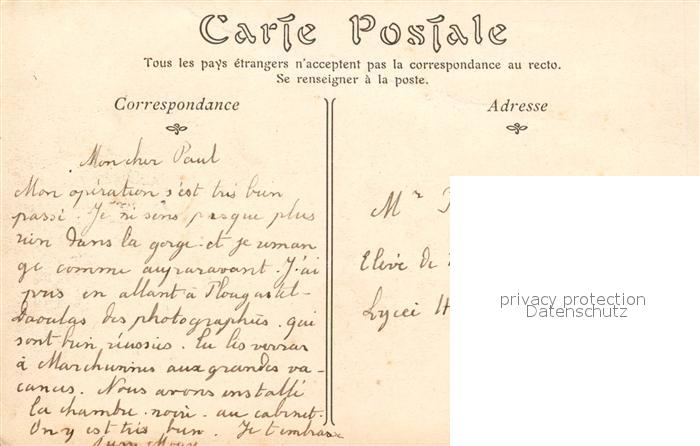 Carte Postale
Tous les pays étrangers n'acceptent pas la correspondance au recto.
Se renseigner à la poste.
Correspondance
Mon cher Paul
Mon opération s'est très bien
passé. Je ne sens presque plus
rien dans la gorge et je reman
ge comme auparavant. J'ai
pris en allant à Plougastel-
Daoulas des photographies qui
sont bien réussies. Tu les verras
à aux grandes va-
cances. Nous avons installé
la chambre noire au cabinet.
On y est très bien. Je t'embrasse
Adresse
Mr
Elève de
Lycée H
privacy protection
Datenschutz